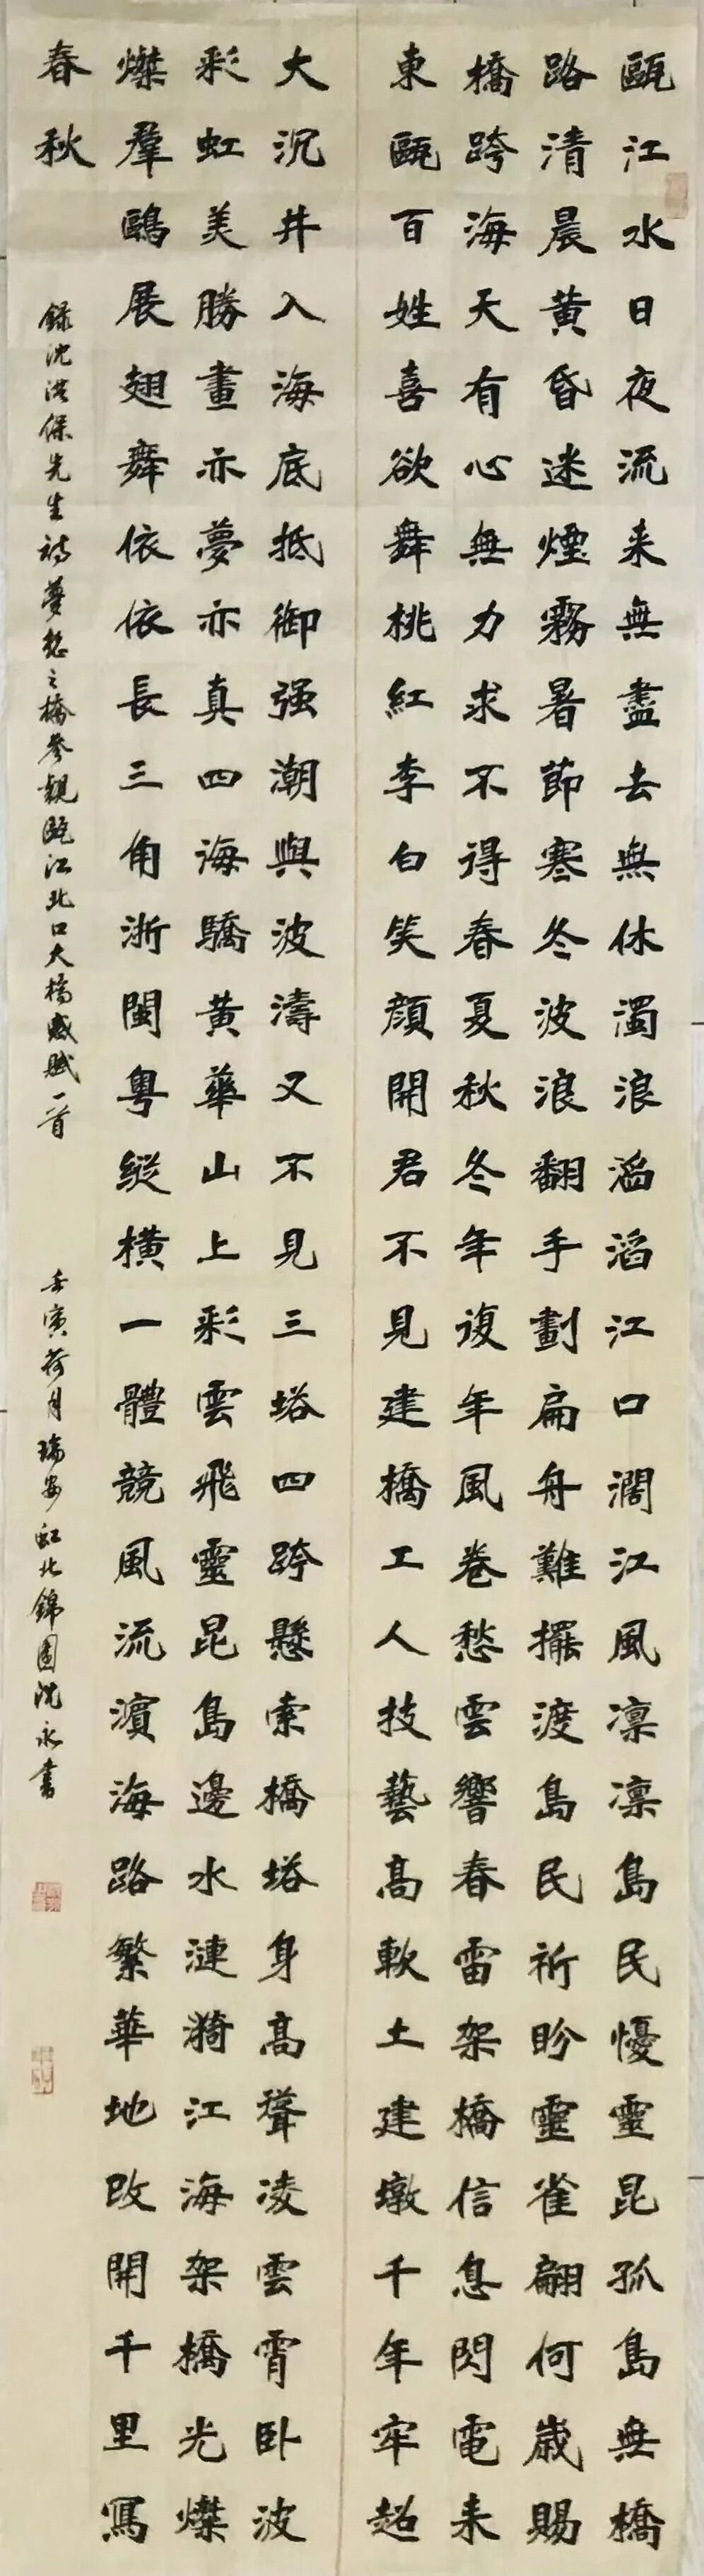 甌江水日夜流来無盡去無休濁浪滔滔江口濶江風凛凛島民憂靈昆孤島無橋
路清晨黄昏迷煙霧暑節寒冬波浪翻手劃扁舟難擺渡島民祈盼靈雀翩何歲賜
橋跨海天有心無力求不得春夏秋冬年復年風卷愁雲響春雷架橋信息閃電来
東甌百姓喜欲舞桃紅李白笑顔開君不見建橋工人技藝高軟土建墩千年牢超
大沉井入海底抵御强潮與波濤又不見三塔四跨懸索橋塔身高聳凌雲霄卧波
彩虹美勝畫亦夢亦真四海驕黄華山上彩雲飛靈昆島邊水漣漪江海架橋光燦
燦羣鷗展翅舞依依長三角浙閩粤縱横一體競風流濱海路繁華地改開千里寫
春秋
録沈洪保先生詩夢想之橋參觀甌江北口大橋感賦一首
壬寅荷月瑞安虹北錦園沈永書